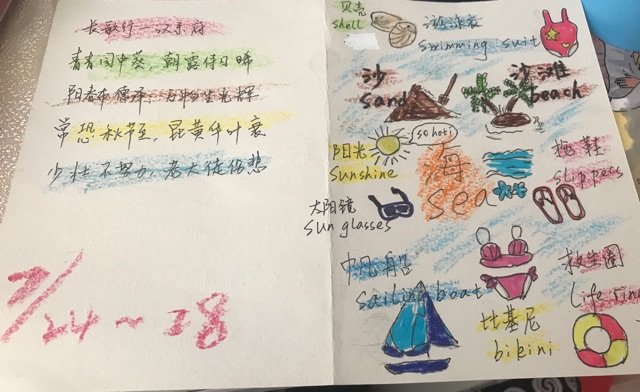 长歌行 汉乐府
青青园中葵，朝露待日晞
阳春布德泽，万物生光辉
常恐秋节至，昆黄华叶衰
少壮不努力，老大徒伤悲
7/24~28
贝壳
shell
游泳衣
swimming suit
沙
sand
沙滩
beach
so hot!
阳光
sunshine
海
sea
拖鞋
slippers
太阳镜
sun glasses
帆船
sailing boat
救生圈
Life ring
比基尼
bikini